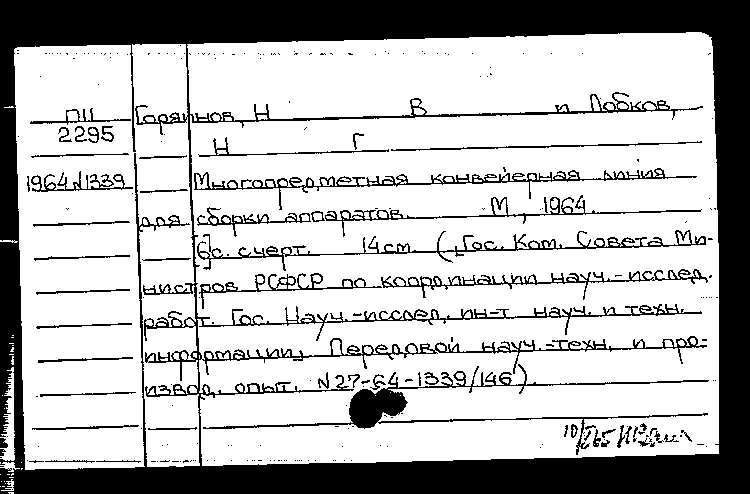 ПН Горяинов, Н В и Лобков,
2295 Н Г
1964 N1339 Многопредметная конвейерная линия
для сборки аппаратов. М, 1964.
[6]с. с черт. 14 см. (Гос. Ком. Совета Ми-
нистров РСФСР по координации науч.-исслед.
работ. Гос. Науч.-исслед. ин-т науч. и техн.
информации, Передовой науч.-техн. и про-
извод. опыт. N27-64-1339/146).